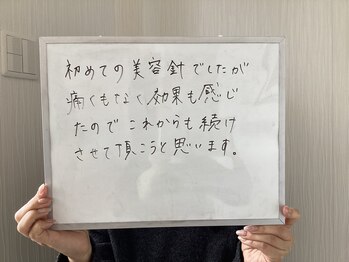 初めての美容針でしたが
痛くもなく効果も感じ
たのでこれからも続け
させて頂こうと思います。